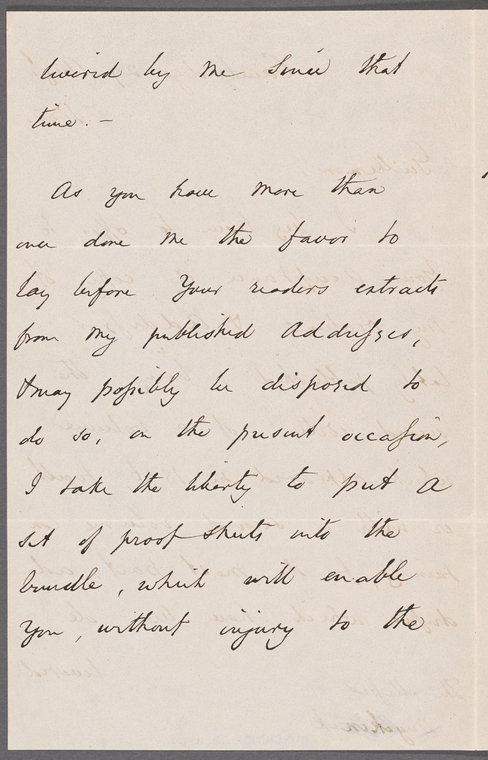 livered by me since that
time. —
As you have more than
once done me the favor to
lay before your readers extracts
from my published Addresses,
& may possibly be disposed to
do so, on the present occasion,
I take the liberty to put a
set of proof sheets into the
bundle, which will enable
you, without injury to the